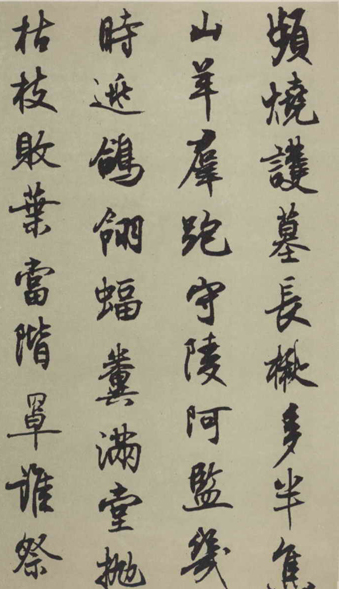 頻燒護墓長楸多半焦
山羊羣跑守陵阿監幾
時逃鴿翎蝠糞滿堂拋
枯枝敗葉當階罩誰祭